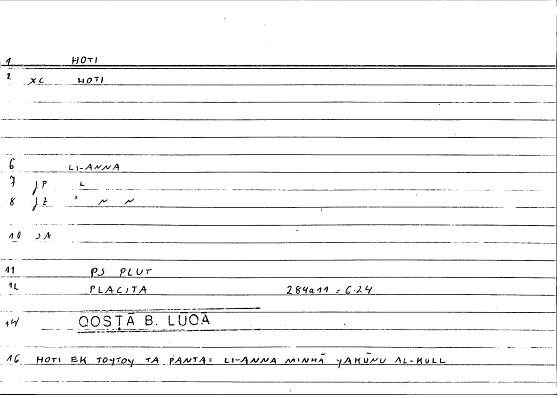 1 HOTI
2 XL HOTI
6 LI-ANNA
7 JP L
8 JZ ' N N
10 JA
11 PS PLUT
12 PLACITA 284a11 = 6.24
14 QOSṬĀ B. LUQĀ
16 HOTI EK TOYTOY TA PANTA = LI-ANNA MINHĀ YAKŪNU AL-KULL